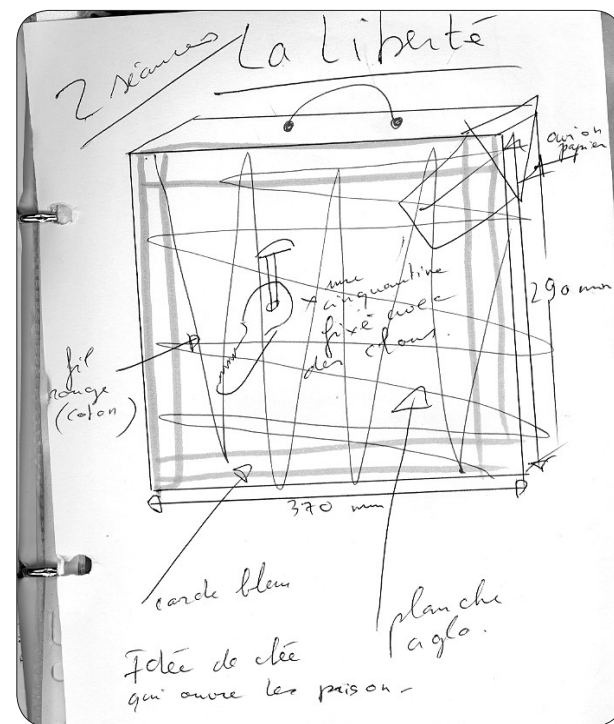 2 séances
La Liberté
avion
papier
une
cinquantine
fixé avec
des clous.
290 mm
fil
rouge
(coton)
370 mm
corde bleu
planche
aglo.
Idée de clée
qui ouvre les prison -